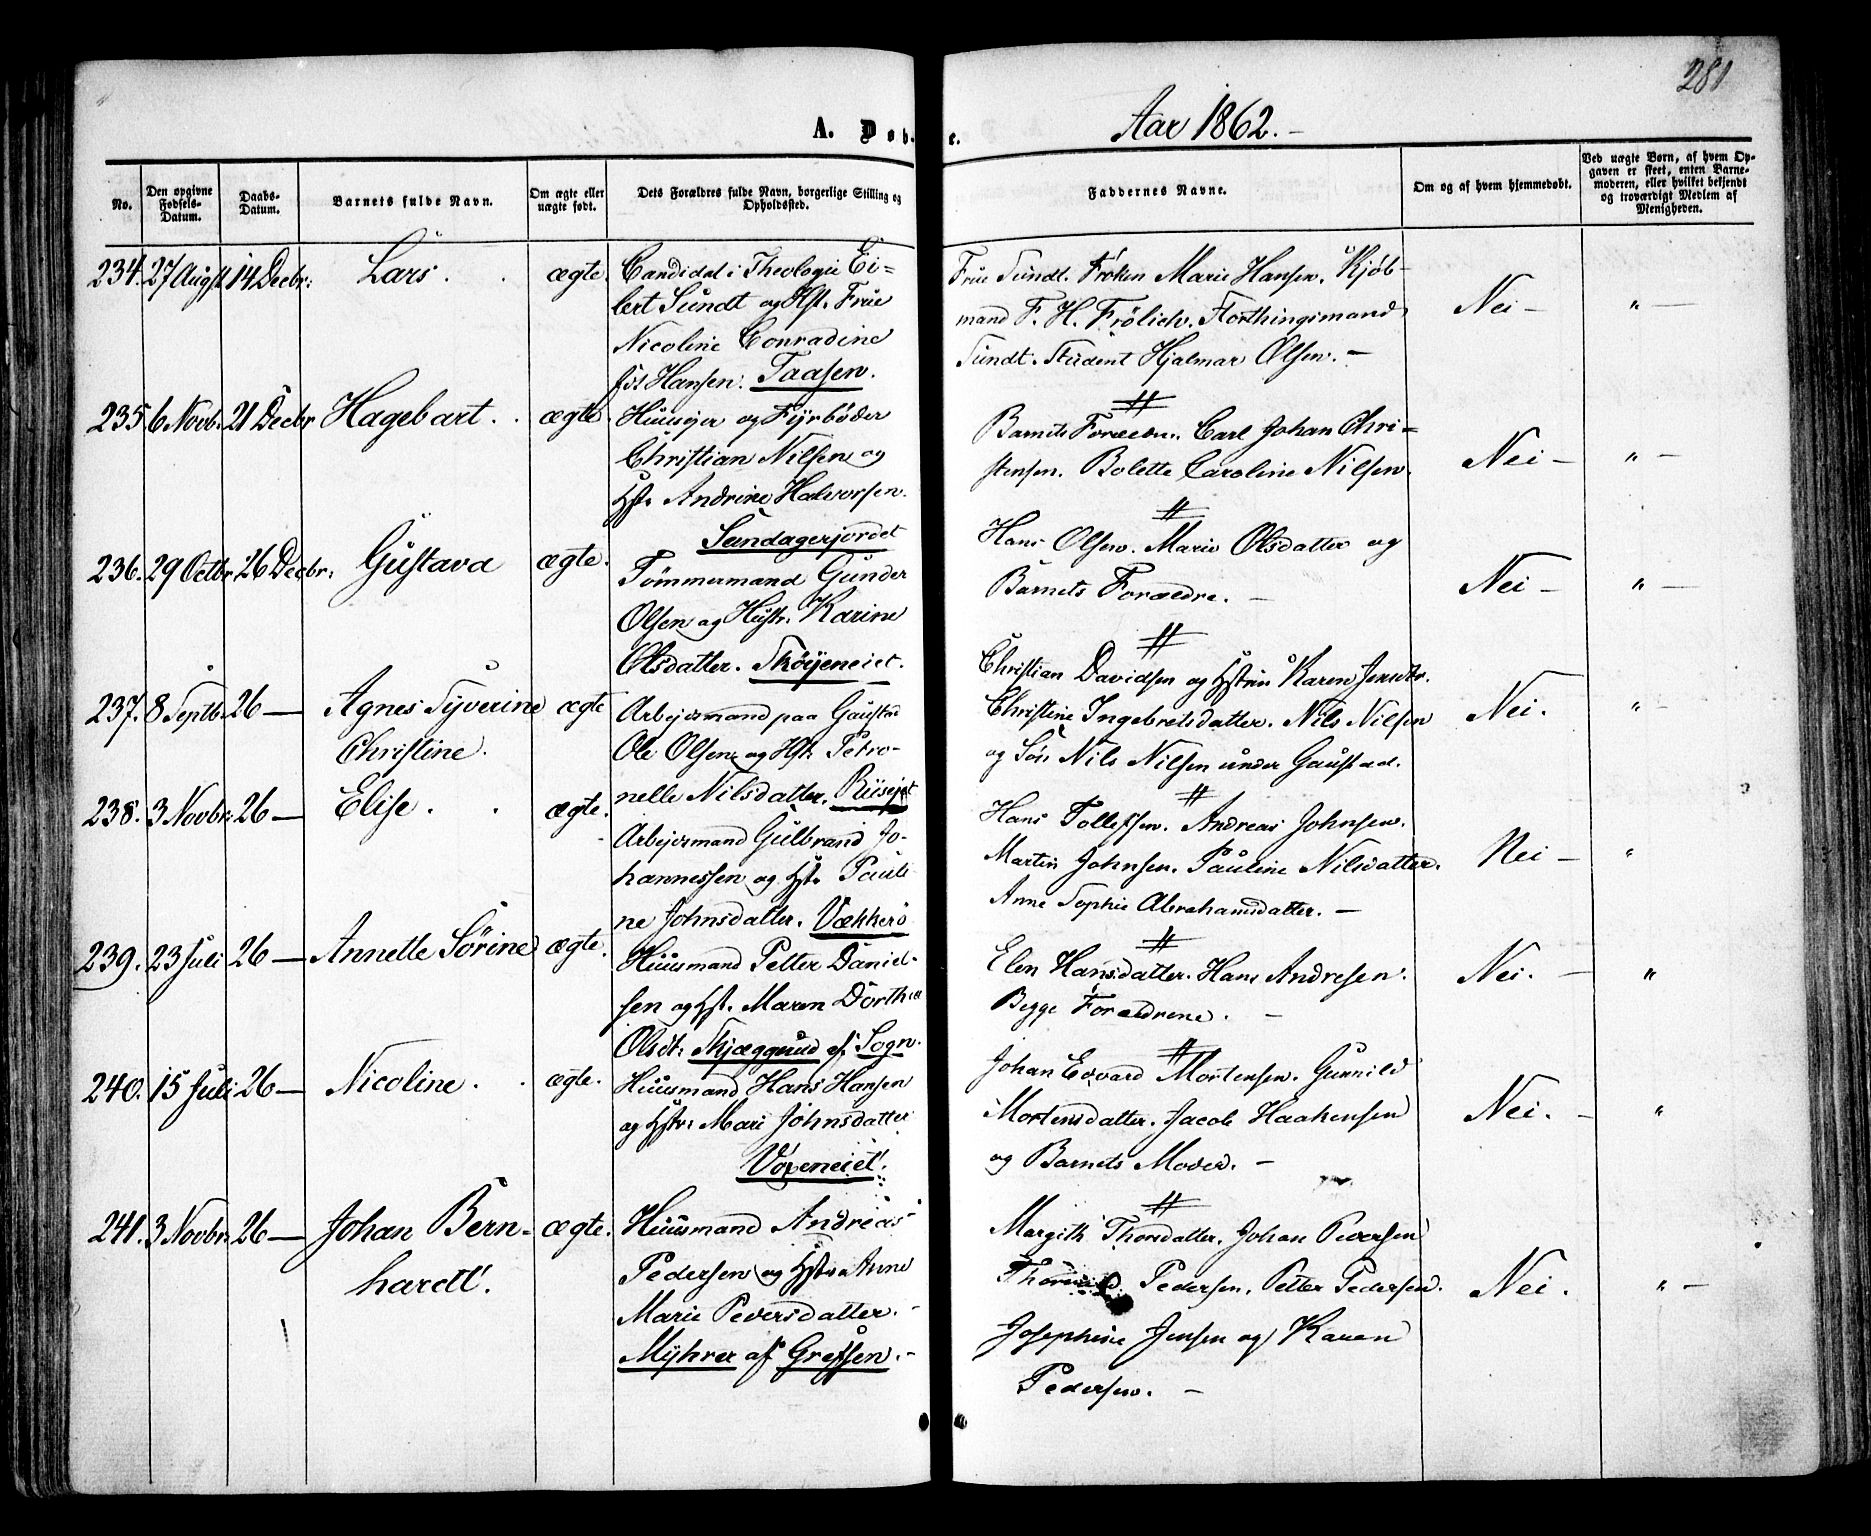 281
A. Døb. e. Aar 1862.-
No.
Den opgivne Fødsels-Datum.
Daabs-Datum.
Barnets fulde Navn.
Om ægte eller uægte født.
Dets Forældres fulde Navn, borgerlige Stilling og Opholdssted.
Faddernes Navne.
Om og af hvem hjemmedøbt.
Ved uægte Børn, af hvem Opgaven er skeet, enten Barnemoderen, eller hvilket bekjendt og troværdigt Medlem af Menigheden.
234. 27 Augst 14 Decbr: Lars. ægte. Candidat i Theologie Ei=
bert Sundt og Hst. Frue
Nicoline Conradine
fød Hansen. Taasen.
Frue Sundt. Frøken Marie Hansen. Kjøb-
mand F. H. Frölich. Storthingsmand
Sundt. Student Hjalmar Olsen. -
Nei - " -
235. 6 Novb. 21 Decbr Hagebart. ægte. Huusejer og Fyrbøder
Christian Nilsen og
Hst. Andrine Halvorsen.
Sundagerjordet
Barnets Forældre. Carl Johan Chri=
stensen. Bolette Caroline Nilsen.
Nei - " -
236. 29 Octbr 26 Decbr: Gustava ægte. Tømmermand Gunder
Olsen og Hustr. Karine
Olsdatter. Skøyeneiet.
Hans Olsen. Marie Olsdatter og
Barnets Forældre. -
Nei - " -
237. 8 Septb. 26 - Agnes Syverine
Christine. ægte Arbejdsmand paa Gaustad
Ole Olsen og Hst. Petro-
nelle Nilsdatter. Riisejet
Christian Davidsen og Hstru Karen Jensdtr.
Christine Ingebretsdatter. Nils Nilsen
og Søn Nils Nilsen under Gaustad.
Nei. " -
238. 3 Novbr: 26 - Elise. ægte. Arbejdsmand Gulbrand Jo-
hannessen og Hst. Pauli
ne Johnsdatter. Vækkerø
Hans Tollefsen. Andreas Johnsen.
Martin Johnsen. Pauline Nilsdatter.
Anne Sophie Abrahamsdatter. -
Nei - "
239. 23 Juli 26 - Annette Sørine ægte. Huusmand Petter Daniel-
sen og Hst. Maren Dorthea
Olsdt: Skjæggerud af Sogn.
Elen Hansdatter. Hans Andresen.
Begge Forældrene. -
Nei. - "
240. 15 Juli 26 - Nicoline. ægte. Huusmand Hans Hansen
og Hstr: Mari Johnsdatter
Voxeneiet.
Johan Edvard Mortensen. Gunnild
Mortensdatter. Jacob Haakensen
og Barnets Moder. -
Nei. - "
241. 3 Novbr: 26 - Johan Bern-
hardt. ægte. Huusmand Andreas
Pedersen og Hstru Anne
Marie Pedersdatter. -
Myhrer af Grefsen. -
Margith Thorsdatter. Johan Pedersen
Pedersen. Petter Pedersen.
Josephine Jensen og Karen
Pedersen. -
Nei. " -